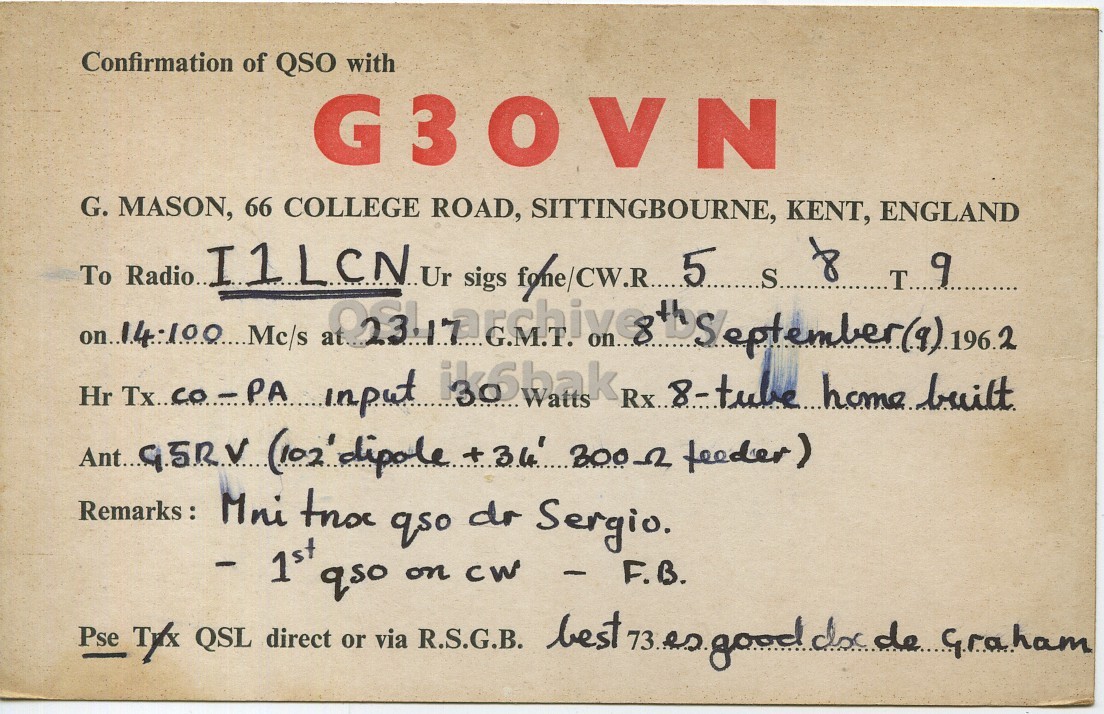 Confirmation of QSO with
G3OVN
G. MASON, 66 COLLEGE ROAD, SITTINGBOURNE, KENT, ENGLAND
To Radio I1LCN Ur sigs fone/CW.R 5 S 8 T 9
on 14·100 Mc/s at 23·17 G.M.T. on 8th September (9) 1962
Hr Tx co-PA input 30 Watts Rx 8-tube home built
Ant G5RV (102' dipole + 34' 300Ω feeder)
Remarks: Mni tnx qso dr Sergio.
- 1st qso on cw - F.B.
Pse Tnx QSL direct or via R.S.G.B. best 73 es good dx de Graham
QSL archive by
ik6bak